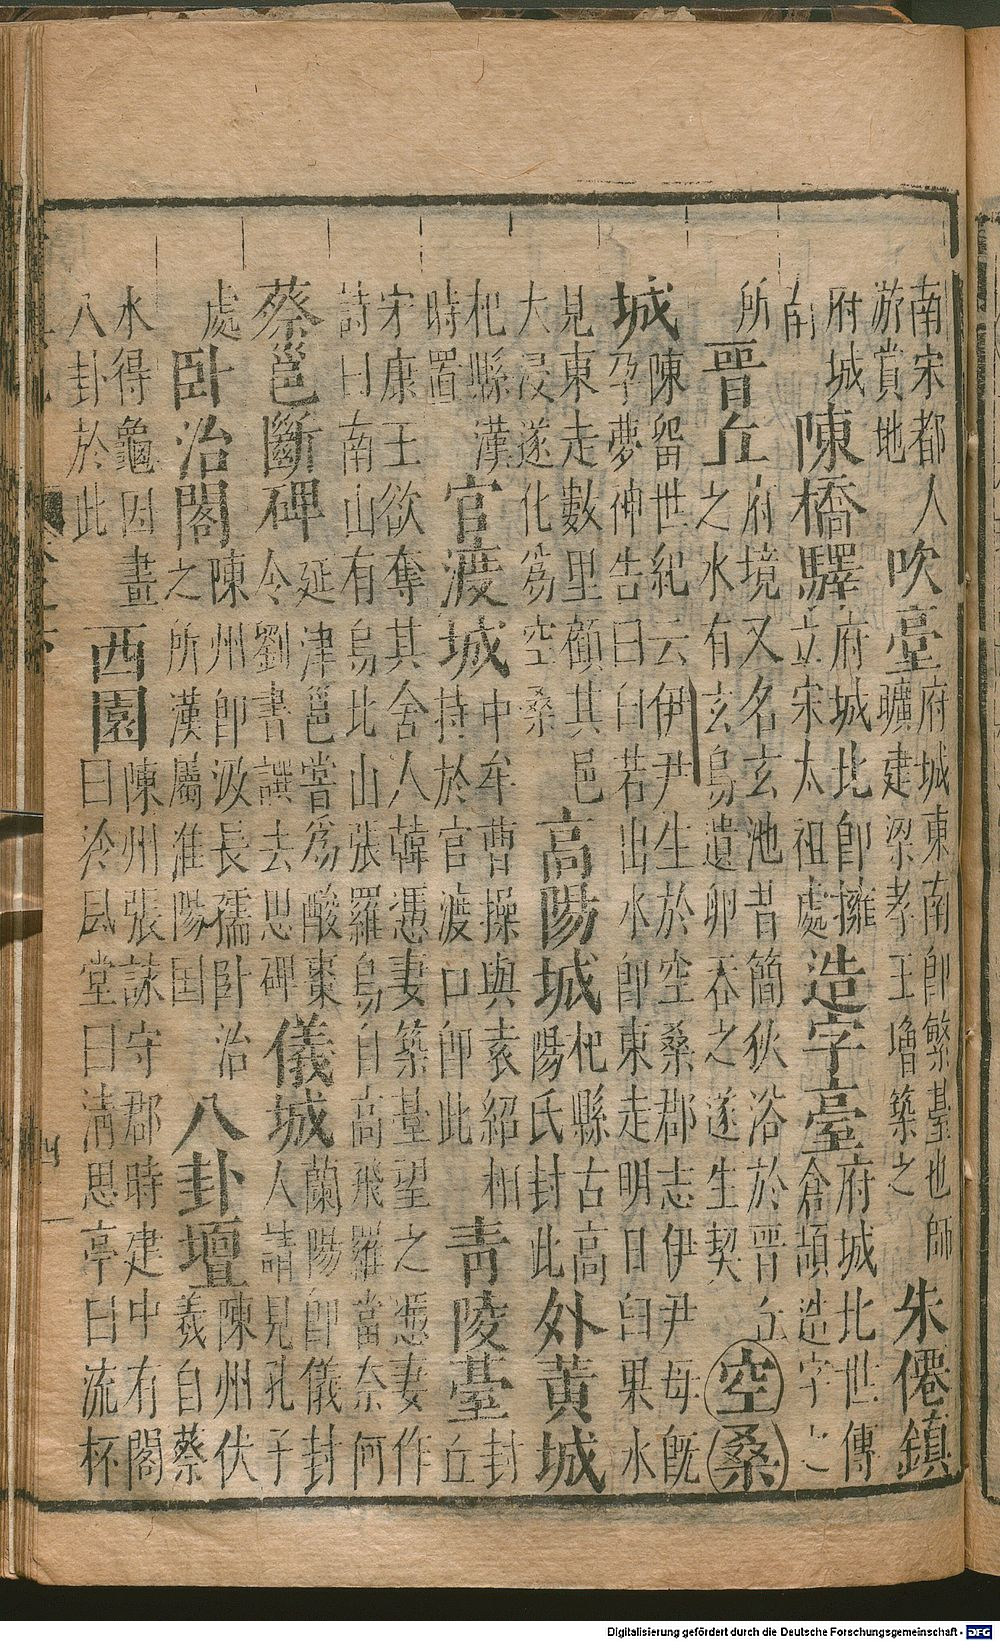 南宋都人
游賞地
吹臺
府城東南即繁臺也師
曠建梁孝王增築之
朱僊鎮
府城
南
陳橋驛
府城北即擁
立宋太祖處
造字臺
府城北世傳
倉頡造字之
所
晋丘
府境又名玄池昔簡狄浴於晋丘
之水有玄鳥遺卵吞之遂生契
空桑
城
陳留世紀云伊尹生於空桑郡志伊尹母既
孕夢神告曰臼若出水即東走明日臼果水
見東走數里顧其邑
大浸遂化為空桑
高陽城
杞縣古高
陽氏封此
外黃城
杞縣漢
時置
官渡城
中牟曹操與袁紹相
持於官渡口即此
青陵臺
封
丘
宋康王欲奪其舍人韓憑妻築臺望之憑妻作
詩曰南山有烏北山張羅烏自高飛羅當奈何
蔡邕斷碑
延津邕嘗為酸棗
令劉書譔去思碑
儀城
蘭陽即儀封
人請見孔子
處
卧治閣
陳州即汲長孺卧治
之所漢屬淮陽国
八卦壇
陳州伏
羲自蔡
水得龜因畫
八卦於此
西園
陳州張詠守郡時建中有閣
曰冷風堂曰清思亭曰流杯
Digitalisierung gefördert durch die Deutsche Forschungsgemeinschaft - DFG